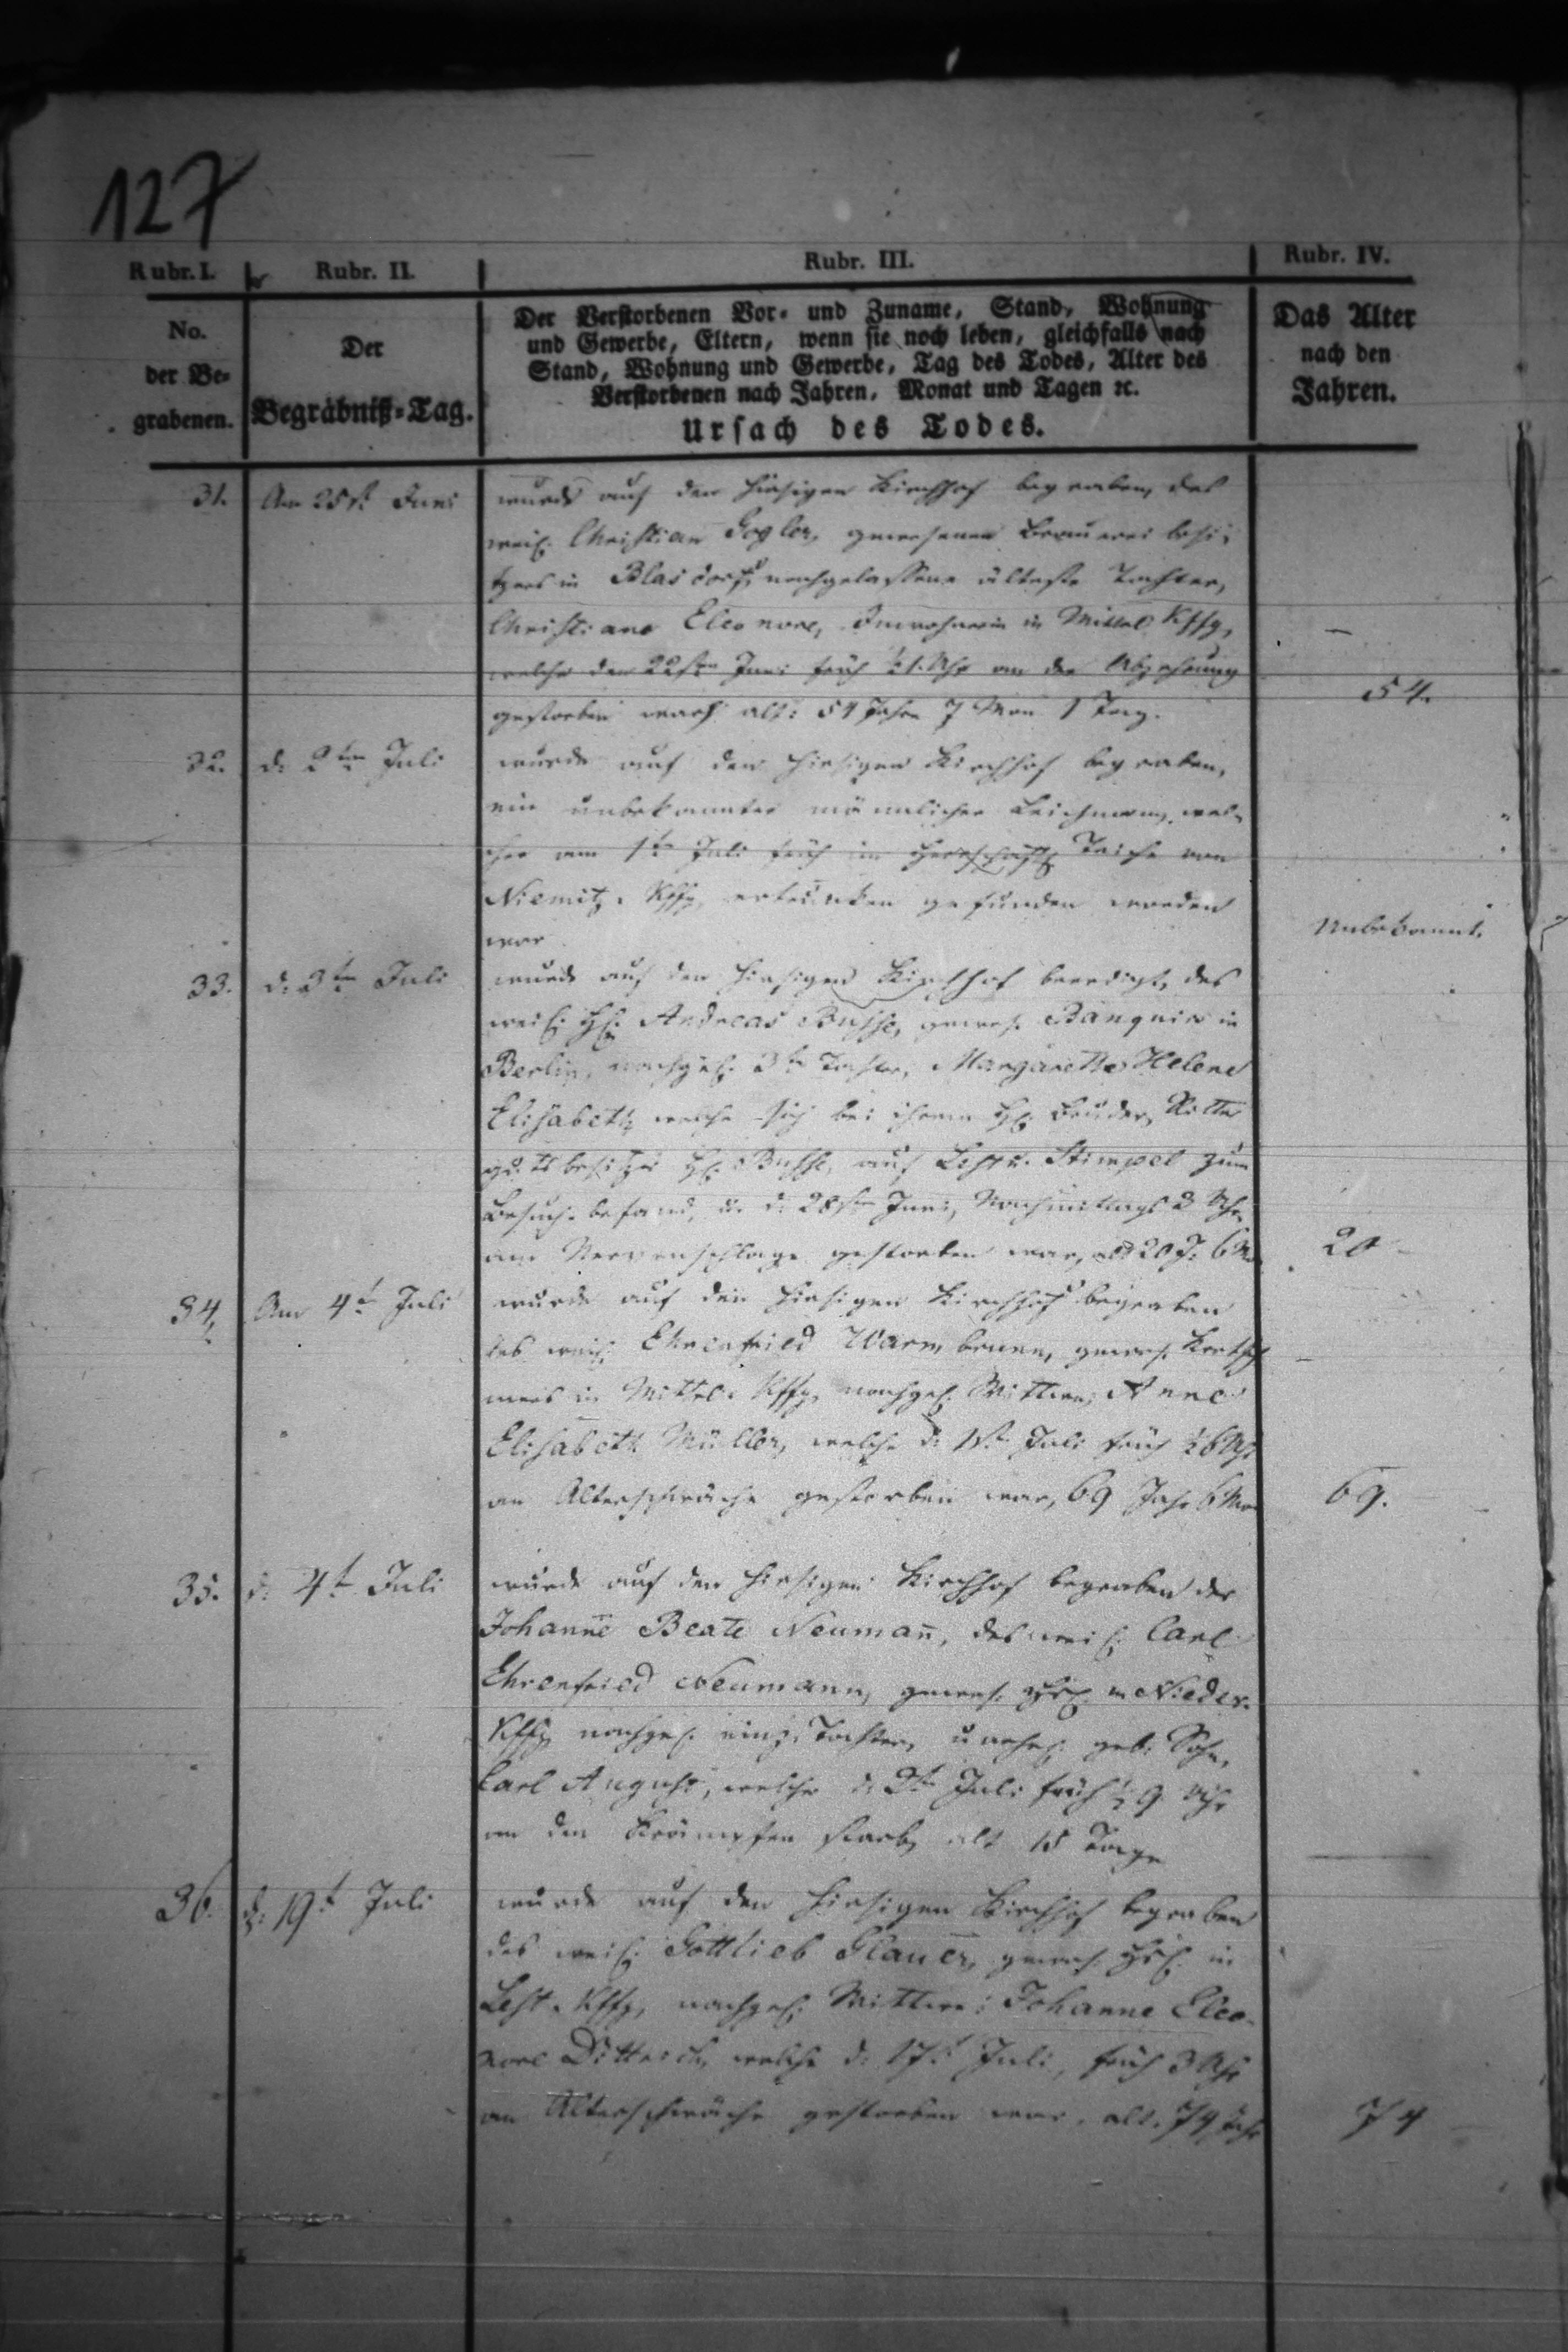 127
Rubr. I. Rubr. II. Rubr. III. Rubr. IV.
No.
der Be-
grabenen.
Der
Begräbniß-Tag.
Der Verstorbenen Vor- und Zuname, Stand, Wohnung
und Gewerbe, Eltern, wenn sie noch leben, gleichfalls nach
Stand, Wohnung und Gewerbe, Tag des Todes, Alter des
Verstorbenen nach Jahren, Monat und Tagen ꝛc.
Ursach des Todes.
Das Alter
nach den
Jahren.
31. Am 25st. Juni wurde auf den hiesigen Kirchhof begraben, des
weil. Christian gewesenen Brauerei besi-
tzers in Blasdorf, nachgelassene älteste Tochter,
Christiane Eleonore, Inwohnerin in Mittel Kffg,
welche den 22sten Juni früh Uhr an der Abzehrung
gestorben war alt: 54 Jahre 7 Mon 1 Tag. 54.
32. d. 2ten Juli wurde auf den hiesigen Kirchhof begraben,
ein unbekannter männlicher Leichnam, wel-
cher am 1t. Juli früh im herrschaftl. Teiche von
Niemitz-Kffg, ertrunken gefunden worden
war Unbekannt.
33. d. 3ten Juli wurde auf den hiesigen Kirchhof beerdigt, des
weil. H. Andreas Busse, gewes. Banquier in
Berlin, nachgel. 3te Tochter, Margarethe Helene
Elisabeth, welche sich bei ihrem H. Bruder, Ritter
gutsbesitzer H. Busse, auf Stimpel zum
Besuch befand, d. 28sten Juni, Nachmittags 2 Uhr
am Nervenschlage gestorben war, alt 20 J. 6 M. 20
34. Am 4t. Juli wurde auf den hiesigen Kirchhof begraben
des weil. Ehrenfried Warmbrunn, gewes. Kretsch
mers in Mittel-Kffg, nachgel. Wittwe, Anne
Elisabeth Müller, welche d. 1st. Juli früh ½6 Uhr
an Altersschwäche gestorben war, 69 Jahr 6 Mon 69.
35. d. 4t. Juli wurde auf den hiesigen Kirchhof begraben der
Johanne Beate Neumañ, des weil. Carl
Ehrenfried Neumann, gewes. in Nieder-
Kffg nachgel. einz. Tochter, unehel. geb. Sohn,
Carl August, welcher d. 2ten Juli früh ½9 Uhr
an den Krämpfen starb, alt 15 Tage
36. d. 19t. Juli wurde auf den hiesigen Kirchhof begraben
des weil. Gottlieb Glauer, gewes. in
Kffg, nachgel. Wittwe: Johanne Eleo-
nore Dittrich, welche d. 17t. Juli, früh 3 Uhr
an Altersschwäche gestorben war, alt. 74 Jahr 74